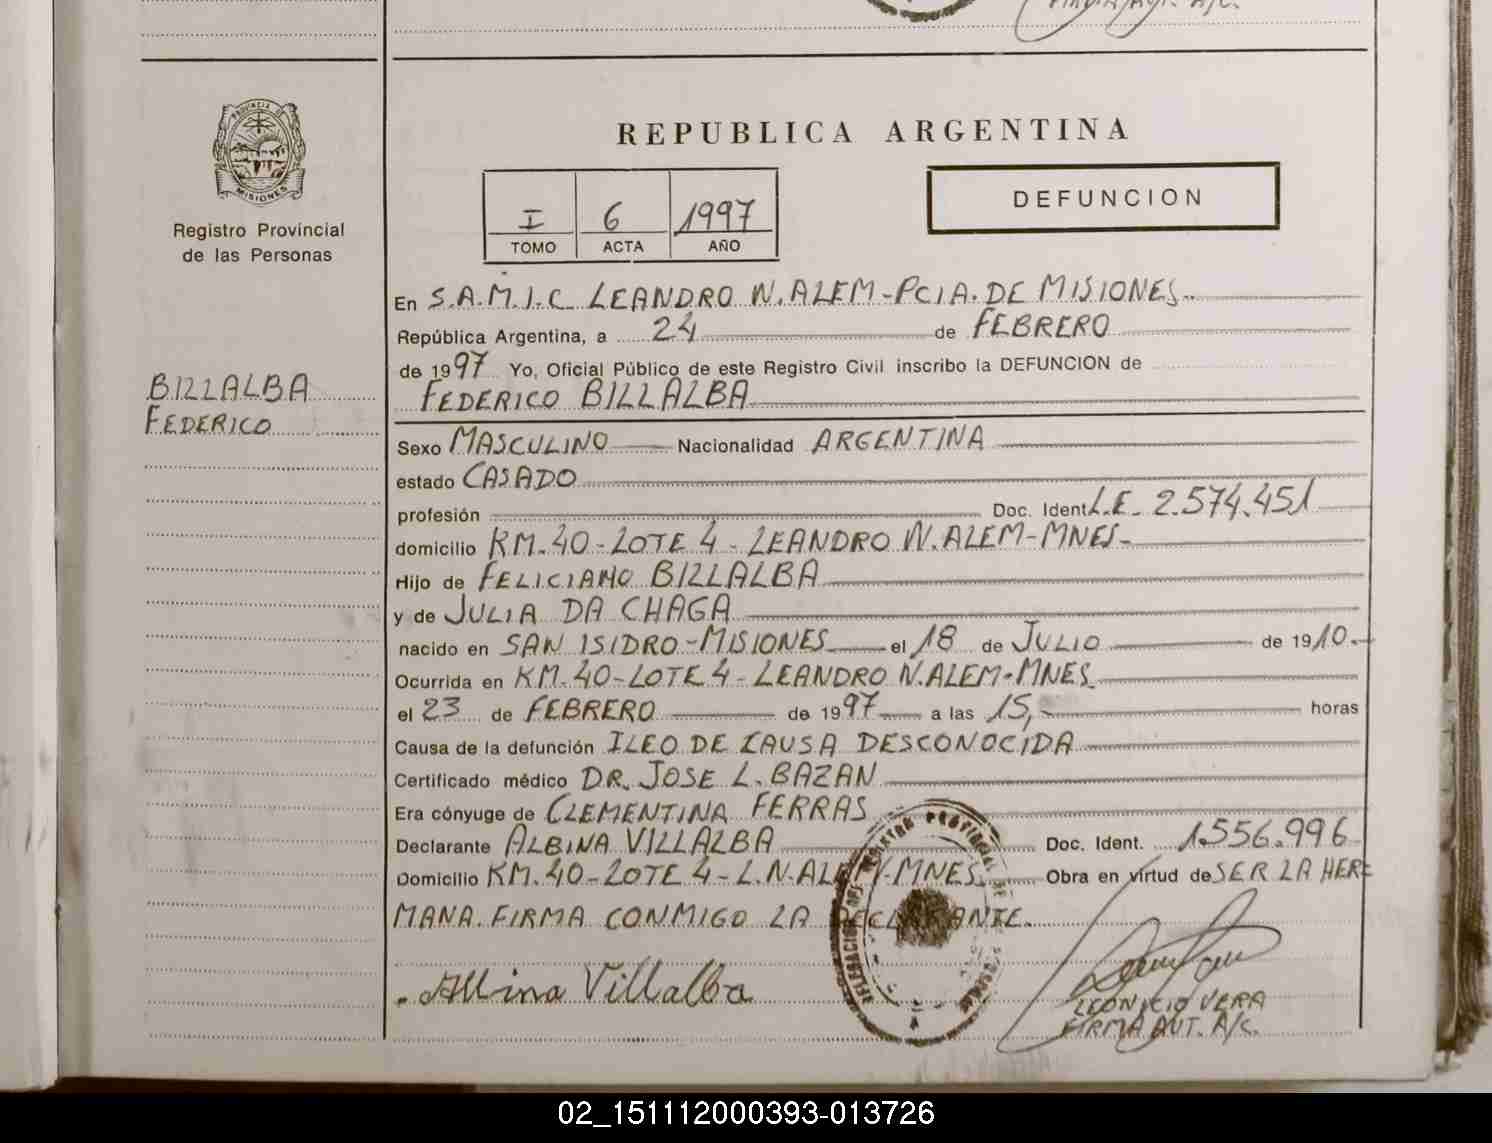 PROVINCIA DE
MISIONES
Registro Provincial
de las Personas
BILLALBA
FEDERICO
REPUBLICA ARGENTINA
I 6 1997
TOMO ACTA AÑO
DEFUNCION
En S.A.M.I.C LEANDRO N. ALEM-PCIA. DE MISIONES.
República Argentina, a 24 de FEBRERO
de 1997 Yo, Oficial Público de este Registro Civil inscribo la DEFUNCION de
FEDERICO BILLALBA
Sexo MASCULINO Nacionalidad ARGENTINA
estado CASADO
profesión Doc. Ident. L.E. 2.574.451
domicilio KM.40-LOTE 4-LEANDRO N. ALEM-MNES-
Hijo de FELICIANO BILLALBA
y de JULIA DA CHAGA
nacido en SAN ISIDRO-MISIONES el 18 de JULIO de 1910.-
Ocurrida en KM.40-LOTE 4-LEANDRO N. ALEM-MNES.
el 23 de FEBRERO de 1997 a las 15,- horas
Causa de la defunción ILEO DE CAUSA DESCONOCIDA
Certificado médico DR. JOSE L. BAZAN
Era cónyuge de CLEMENTINA FERRAS
Declarante ALBINA VILLALBA Doc. Ident. 1556.996
Domicilio KM.40-LOTE 4-L.N.ALEM-MNES. Obra en virtud de SER LA HER
MANA. FIRMA CONMIGO LA DECLARANTE.
Albina Villalba
LEONICIO VERA
FIRMA AUT. A/C.
02_151112000393-013726